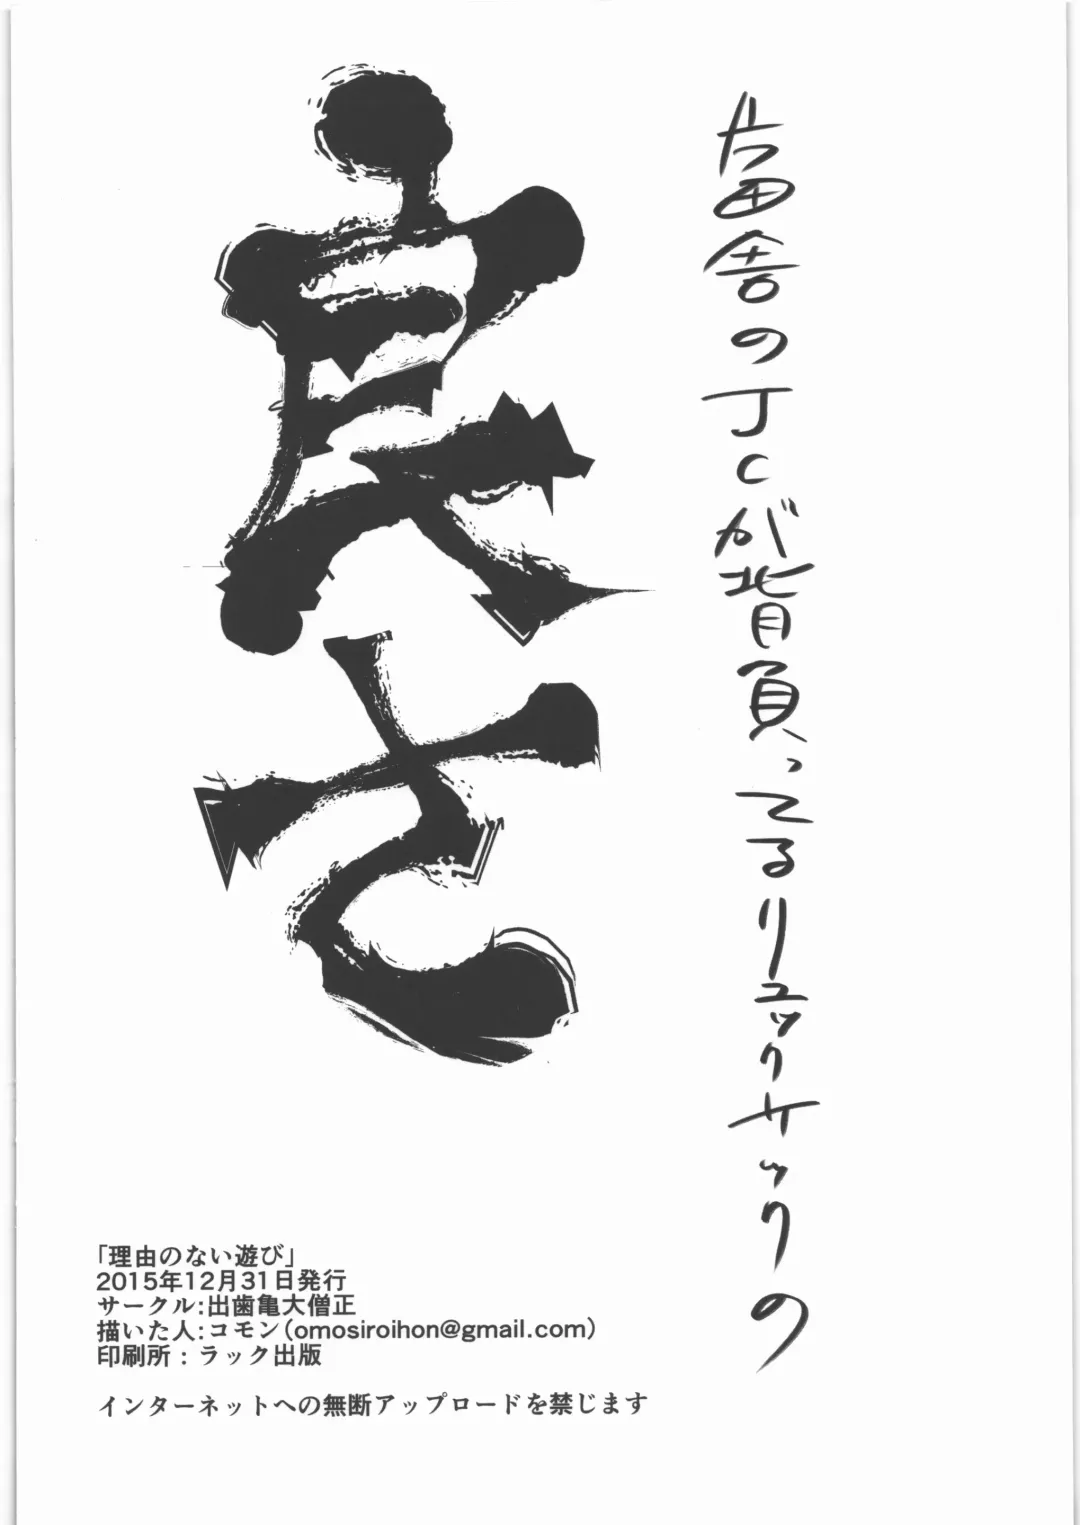 片田舎のJCが背負ってるリュックサックの
良さ
「理由のない遊び」
2015年12月31日発行
サークル:出歯亀大僧正
描いた人:コモン(omosiroihon@gmail.com)
印刷所:ラック出版
インターネットへの無断アップロードを禁じます